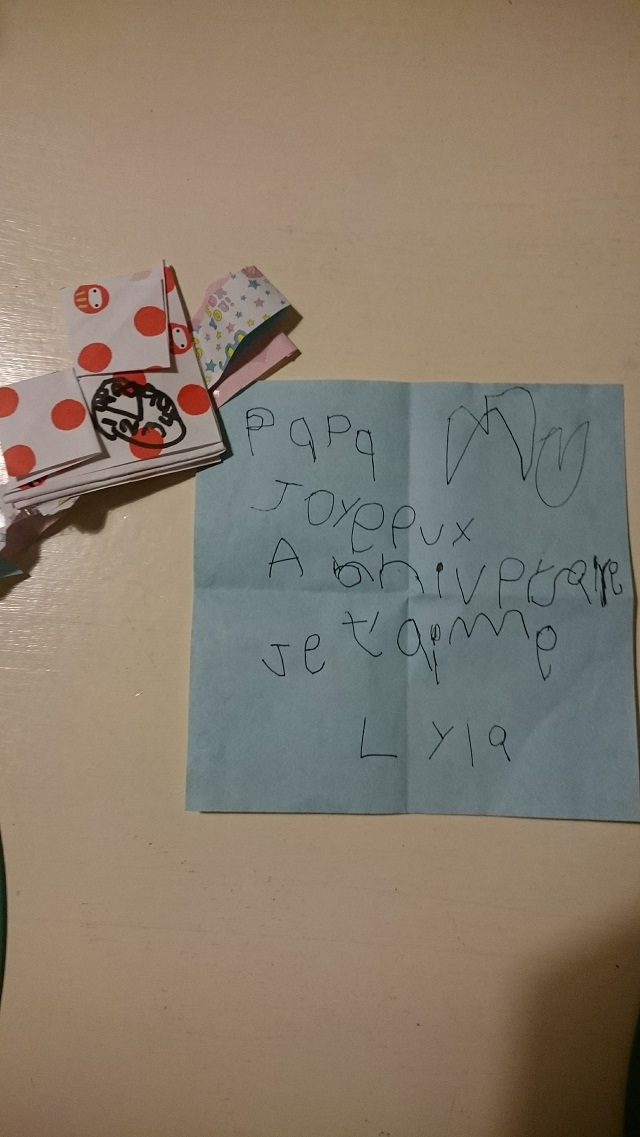 Papa
Joyeeux
A aniversaire
Je t'aime
Lyla